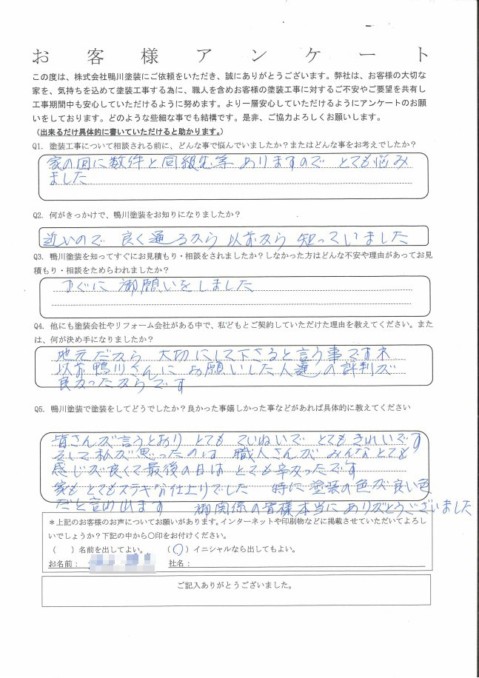 お客様アンケート
この度は、株式会社鴨川塗装にご依頼をいただき、誠にありがとうございます。弊社は、お客様の大切な
家を、気持ちを込めて塗装工事する為に、職人を含めお客様の塗装工事に対するご不安やご要望を共有し
工事期間中も安心していただけるように努めます。より一層安心していただけるようにアンケートのお願
いをしております。どのような些細な事でも結構です。是非、ご協力よろしくお願いします。
(出来るだけ具体的に書いていただけると助かります。)
Q1. 塗装工事について相談される前に、どんな事で悩んでいましたか?またはどんな事をお考えでしたか?
家の回に数件と同級生等 ありますので とても悩み
ました
Q2. 何がきっかけで、鴨川塗装をお知りになりましたか?
近いので 良く通るから 以前から 知っていました
Q3. 鴨川塗装を知ってすぐにお見積もり・相談をされましたか?しなかった方はどんな不安や理由があってお見
積もり・相談をためらわれましたか?
すぐに 御願いをしました
Q4. 他にも塗装会社やリフォーム会社がある中で、私どもとご契約していただけた理由を教えてください。また
は、何が決め手になりましたか?
地元だから 大切にして下さると言う事ですネ
以前鴨川さんに お願いした人達の評判が
良かったからです
Q5. 鴨川塗装で塗装をしてどうでしたか?良かった事嬉しかった事などがあれば具体的に教えてください
皆さんが言うとおり とても ていねいで とても きれいです
そして私が思ったのは 職人さんが みんなとても
感じが良くて最後の日は とても辛かったです
家も とてもステキな仕上りでした 特に塗装の色が良い色
だと言われます 御関係の皆様本当にありがとうございました
*上記のお客様のお声についてお願いがあります。インターネットや印刷物などに掲載させていただいてよろし
いでしょうか?下記の中から○印をお付けください。
( )名前を出してよい。 (○)イニシャルなら出してもよい。
お名前: 社名:
ご記入ありがとうございました。